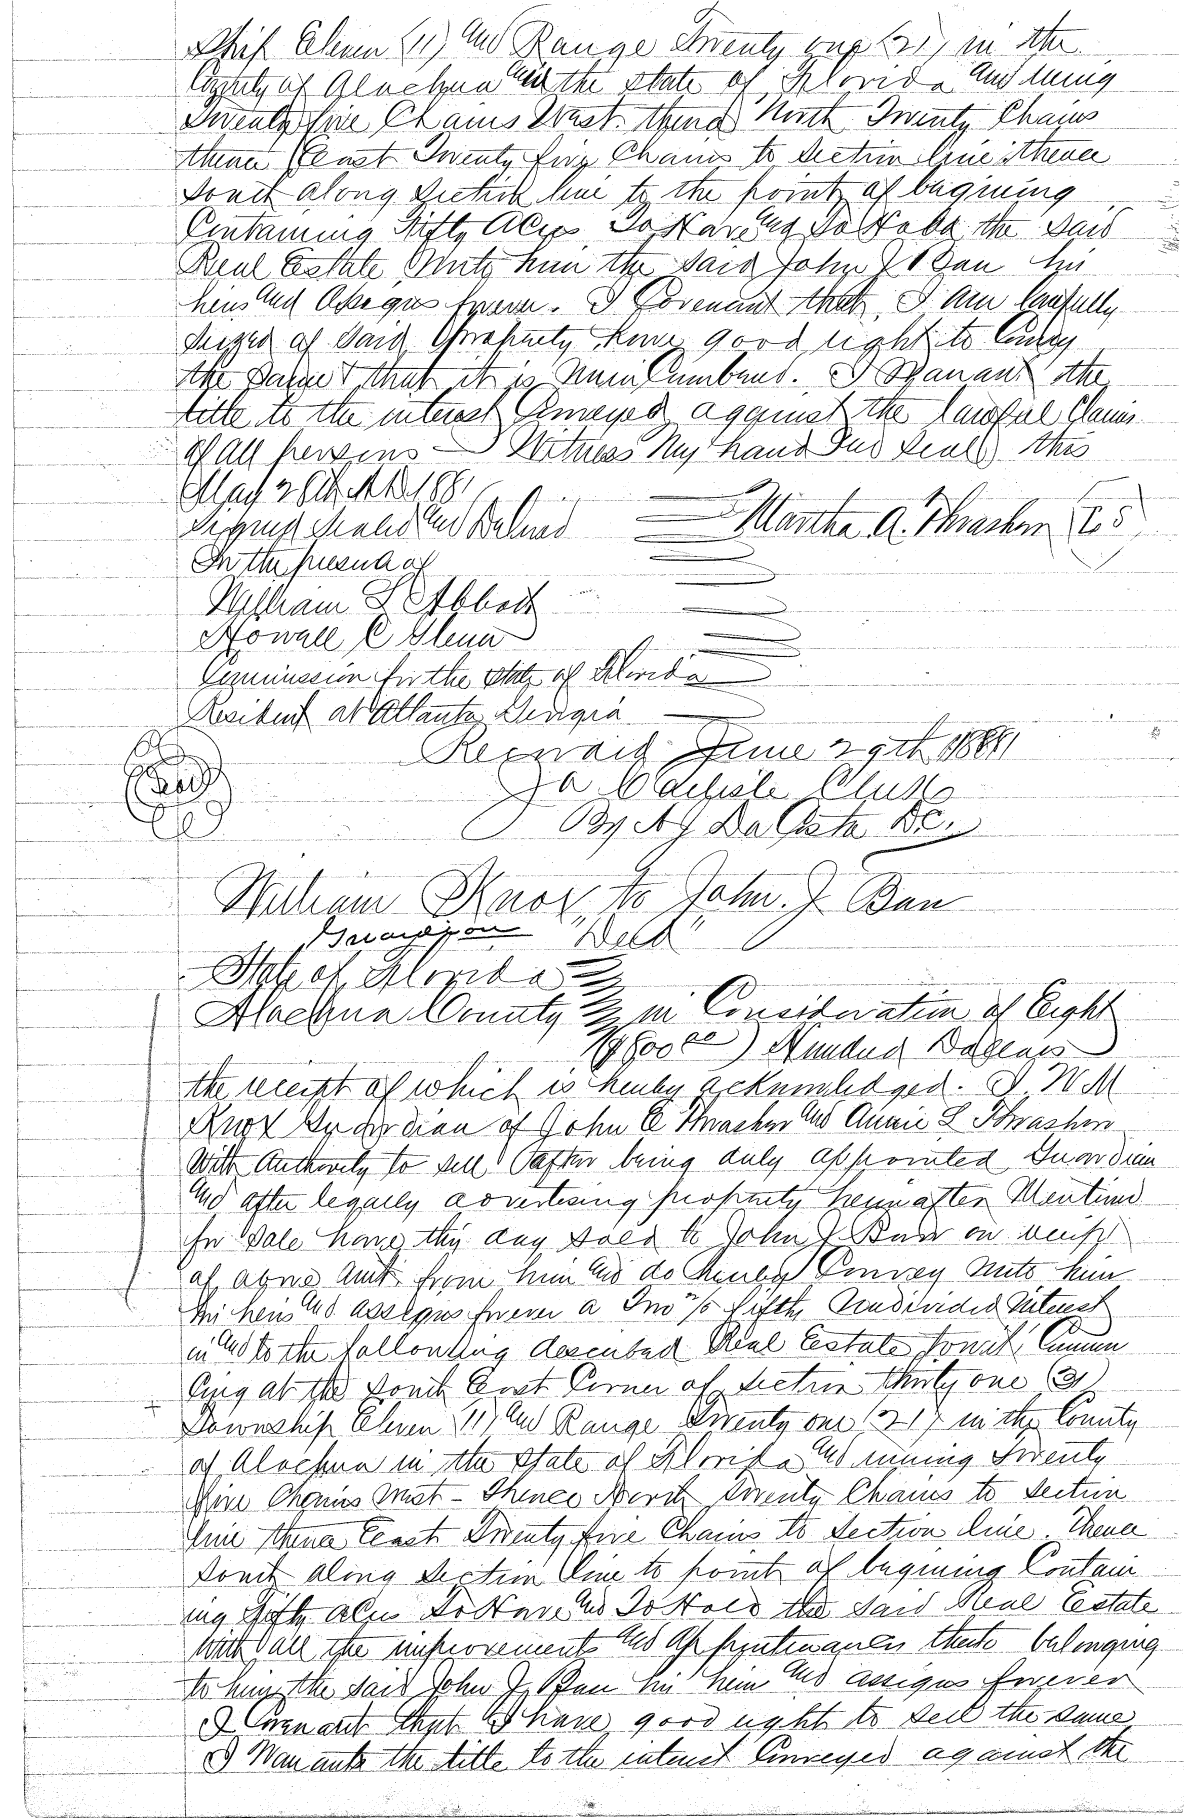 Ship Eleven (11) and Range Twenty one (21) in the
County of Alachua and in the State of Florida and runing
Twenty five Chains West thence North Twenty Chains
thence East Twenty five Chains to Section line thence
South along Section line to the point of begining
Containing Fifty Acres To Have and To Hold the said
Real Estate Unto him the said John J his
heirs and Assigns forever. I Covenant that I am lawfully
Seized of said Property have good right to Convey
the same & that it is unincumbered. I Warrant the
title to the interest Conveyed against the lawful Claims
of all persons — Witness My hand and seal this
May 28th AD 1881
Signed Sealed and Delivered Martha A. Thrasher LS
In the presence of
William L Abbott
Howell C Glenn
Commission for the State of Florida
Resident at Atlanta Georgia
Seal
Record June 29th 1881
J A Carlisle Clerk
By A J DaCosta DC.
William Knox to John. J.
Guardian "Deed"
State of Florida
Alachua County in Consideration of Eight
($800 00) Hundred Dollars
the receipt of which is hereby acknowledged. I WM
Knox Guardian of John E Thrasher and Annie L Thrasher
With Authority to sell after being duly appointed Guardian
and after legally advertising property hereinafter Mentioned
for Sale have this day sold to John J on receipt
of above Amt from him and do hereby Convey unto him
his heirs and assigns forever a Two 2/5 fifths Undivided Interest
in and to the following described Real Estate towit Commen
cing at the South East Corner of Section thirty one (31)
Township Eleven (11) and Range Twenty one (21) in the County
of Alachua in the State of Florida and runing Twenty
five Chains West - Thence North Twenty Chains to Section
line thence East Twenty five Chains to Section line. Thence
South along Section line to point of begining Contain
ing fifty acres To Have and To Hold the said Real Estate
With all the improvements and appurtenances thereto belonging
to him the said John J his heirs and assigns forever
I Covenant that I have good right to sell the same
I Warrant the title to the interest Conveyed against the